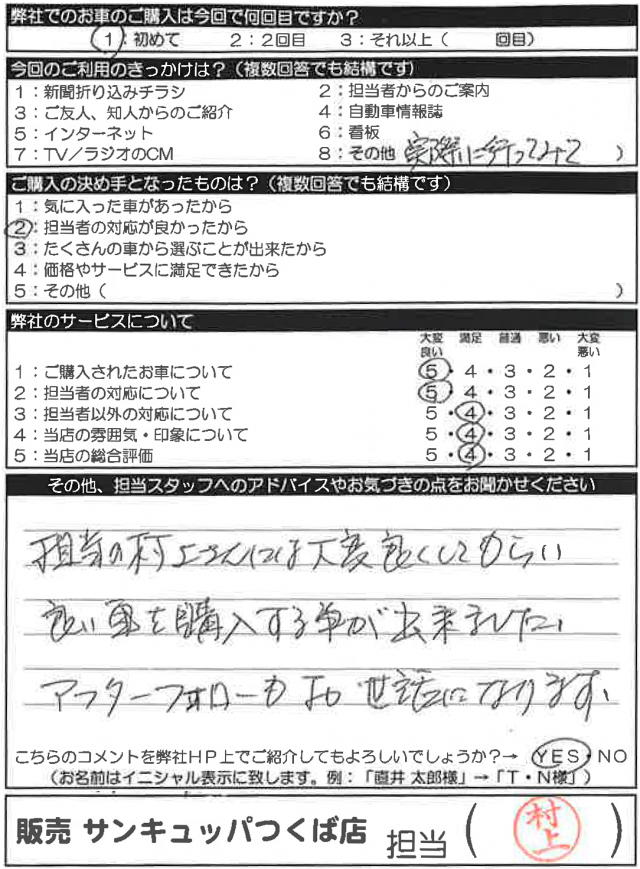 弊社でのお車のご購入は今回で何回目ですか?
1:初めて 2:2回目 3:それ以上( 回目)
今回のご利用のきっかけは?(複数回答でも結構です)
1:新聞折り込みチラシ 2:担当者からのご案内
3:ご友人、知人からのご紹介 4:自動車情報誌
5:インターネット 6:看板
7:TV/ラジオのCM 8:その他 実際に行ってみて )
ご購入の決め手となったものは?(複数回答でも結構です)
1:気に入った車があったから
2:担当者の対応が良かったから
3:たくさんの車から選ぶことが出来たから
4:価格やサービスに満足できたから
5:その他( )
弊社のサービスについて
大変良い 満足 普通 悪い 大変悪い
1:ご購入されたお車について 5・4・3・2・1
2:担当者の対応について 5・4・3・2・1
3:担当者以外の対応について 5・4・3・2・1
4:当店の雰囲気・印象について 5・4・3・2・1
5:当店の総合評価 5・4・3・2・1
その他、担当スタッフへのアドバイスやお気づきの点をお聞かせください
担当の村上さんには大変良くしてもらい
良い車を購入する事が出来ました。
アフターフォローもお世話になります。
こちらのコメントを弊社HP上でご紹介してもよろしいでしょうか?→ YES・NO
(お名前はイニシャル表示に致します。例:「直井 太郎様」→「T・N様」)
販売 サンキュッパつくば店 担当( 村上 )